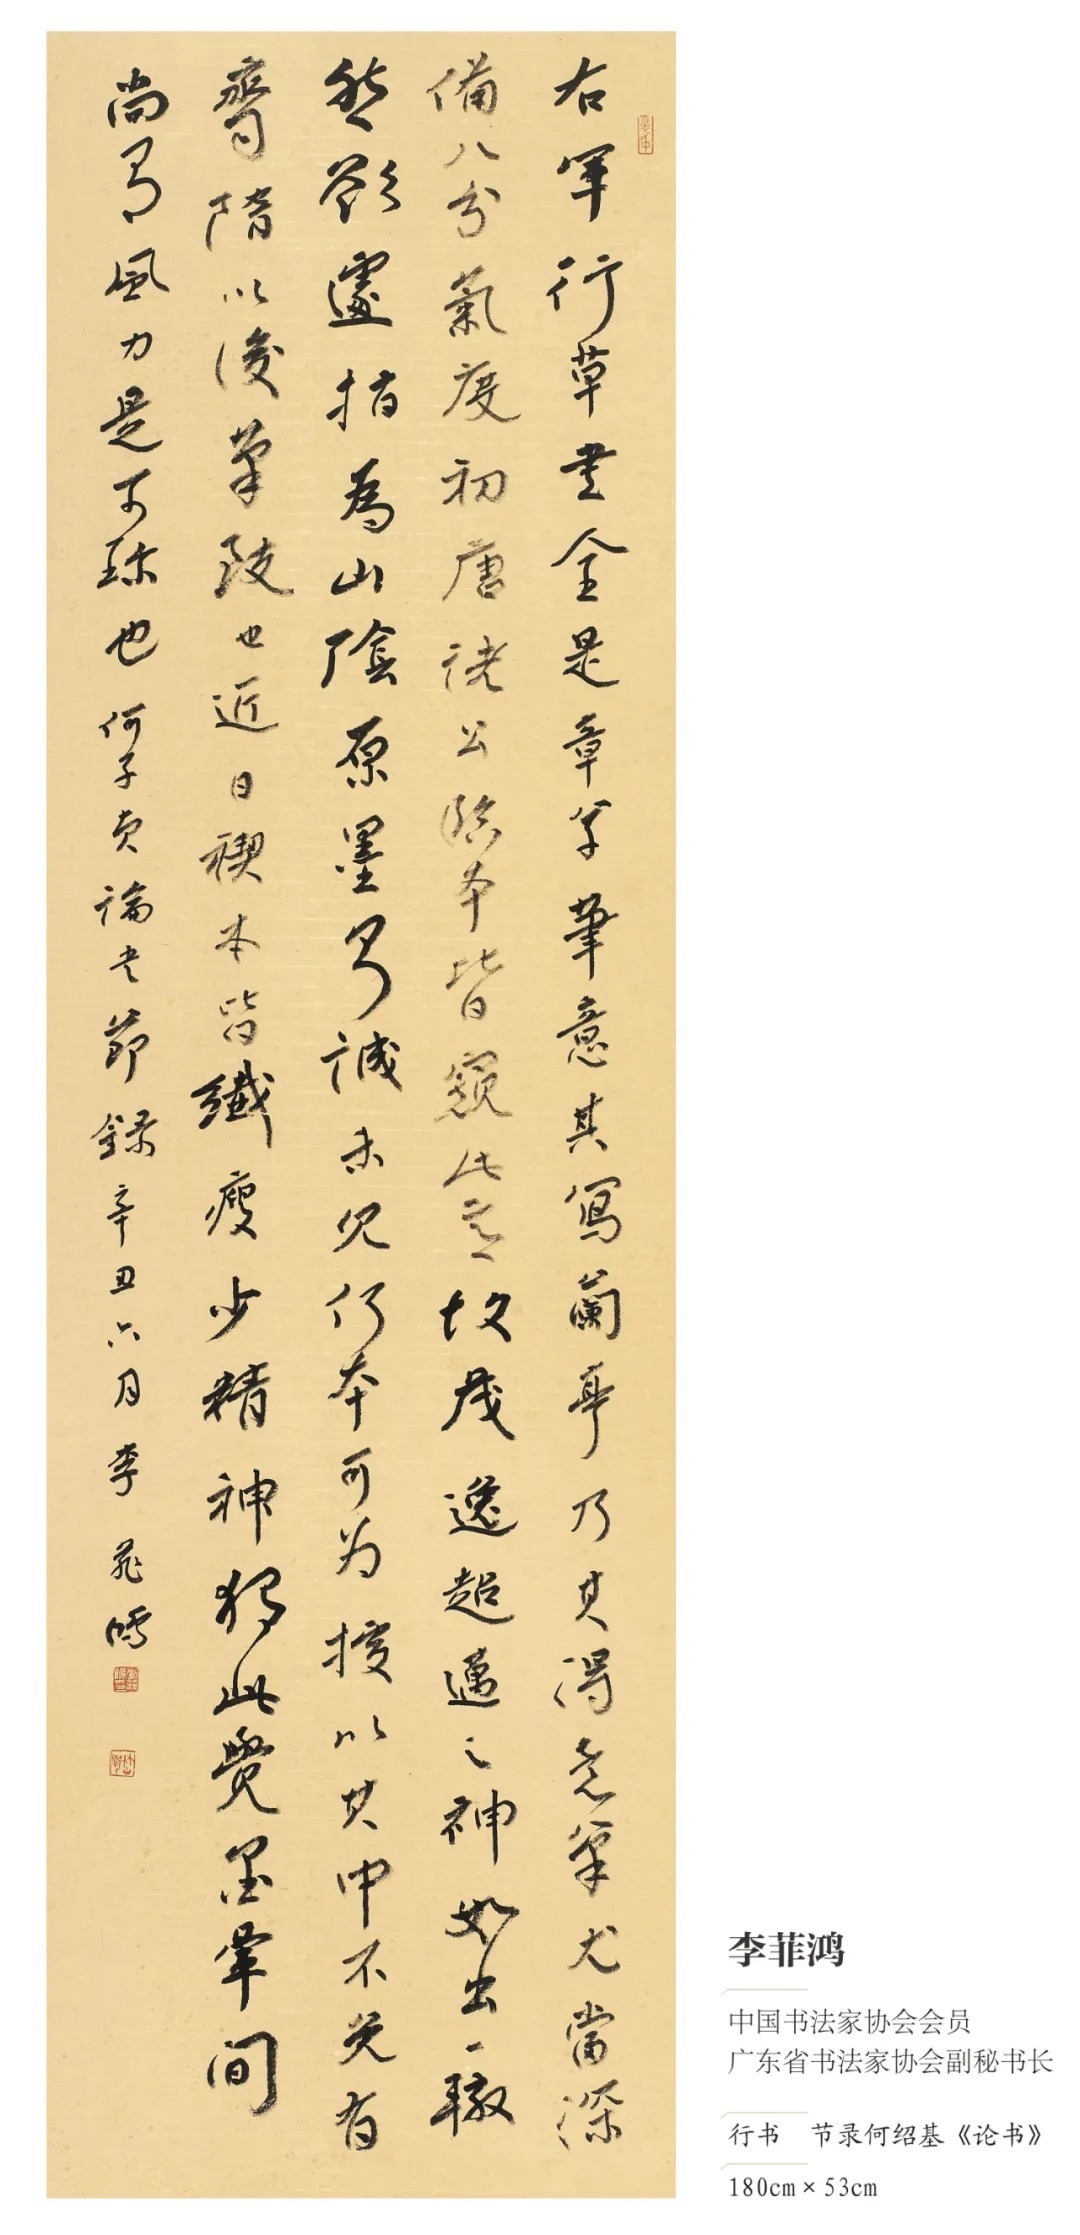 右軍行草書全是章草筆意其寫蘭亭乃其得意筆尤當深
備八分氣度初唐諸公臨本皆窺此意故茂逸超邁之神如出一轍
然欲遽指為山陰原墨則誠未見何本可为據以其中不免有
齊隋以後筆致也近日禊本皆纖瘦少精神獨此覺墨筆間
尚有風力是可珍也何子貞論書節錄辛丑六月李菲鴻
李菲鸿
中国书法家协会会员
广东省书法家协会副秘书长
行书　节录何绍基《论书》
180cm × 53cm